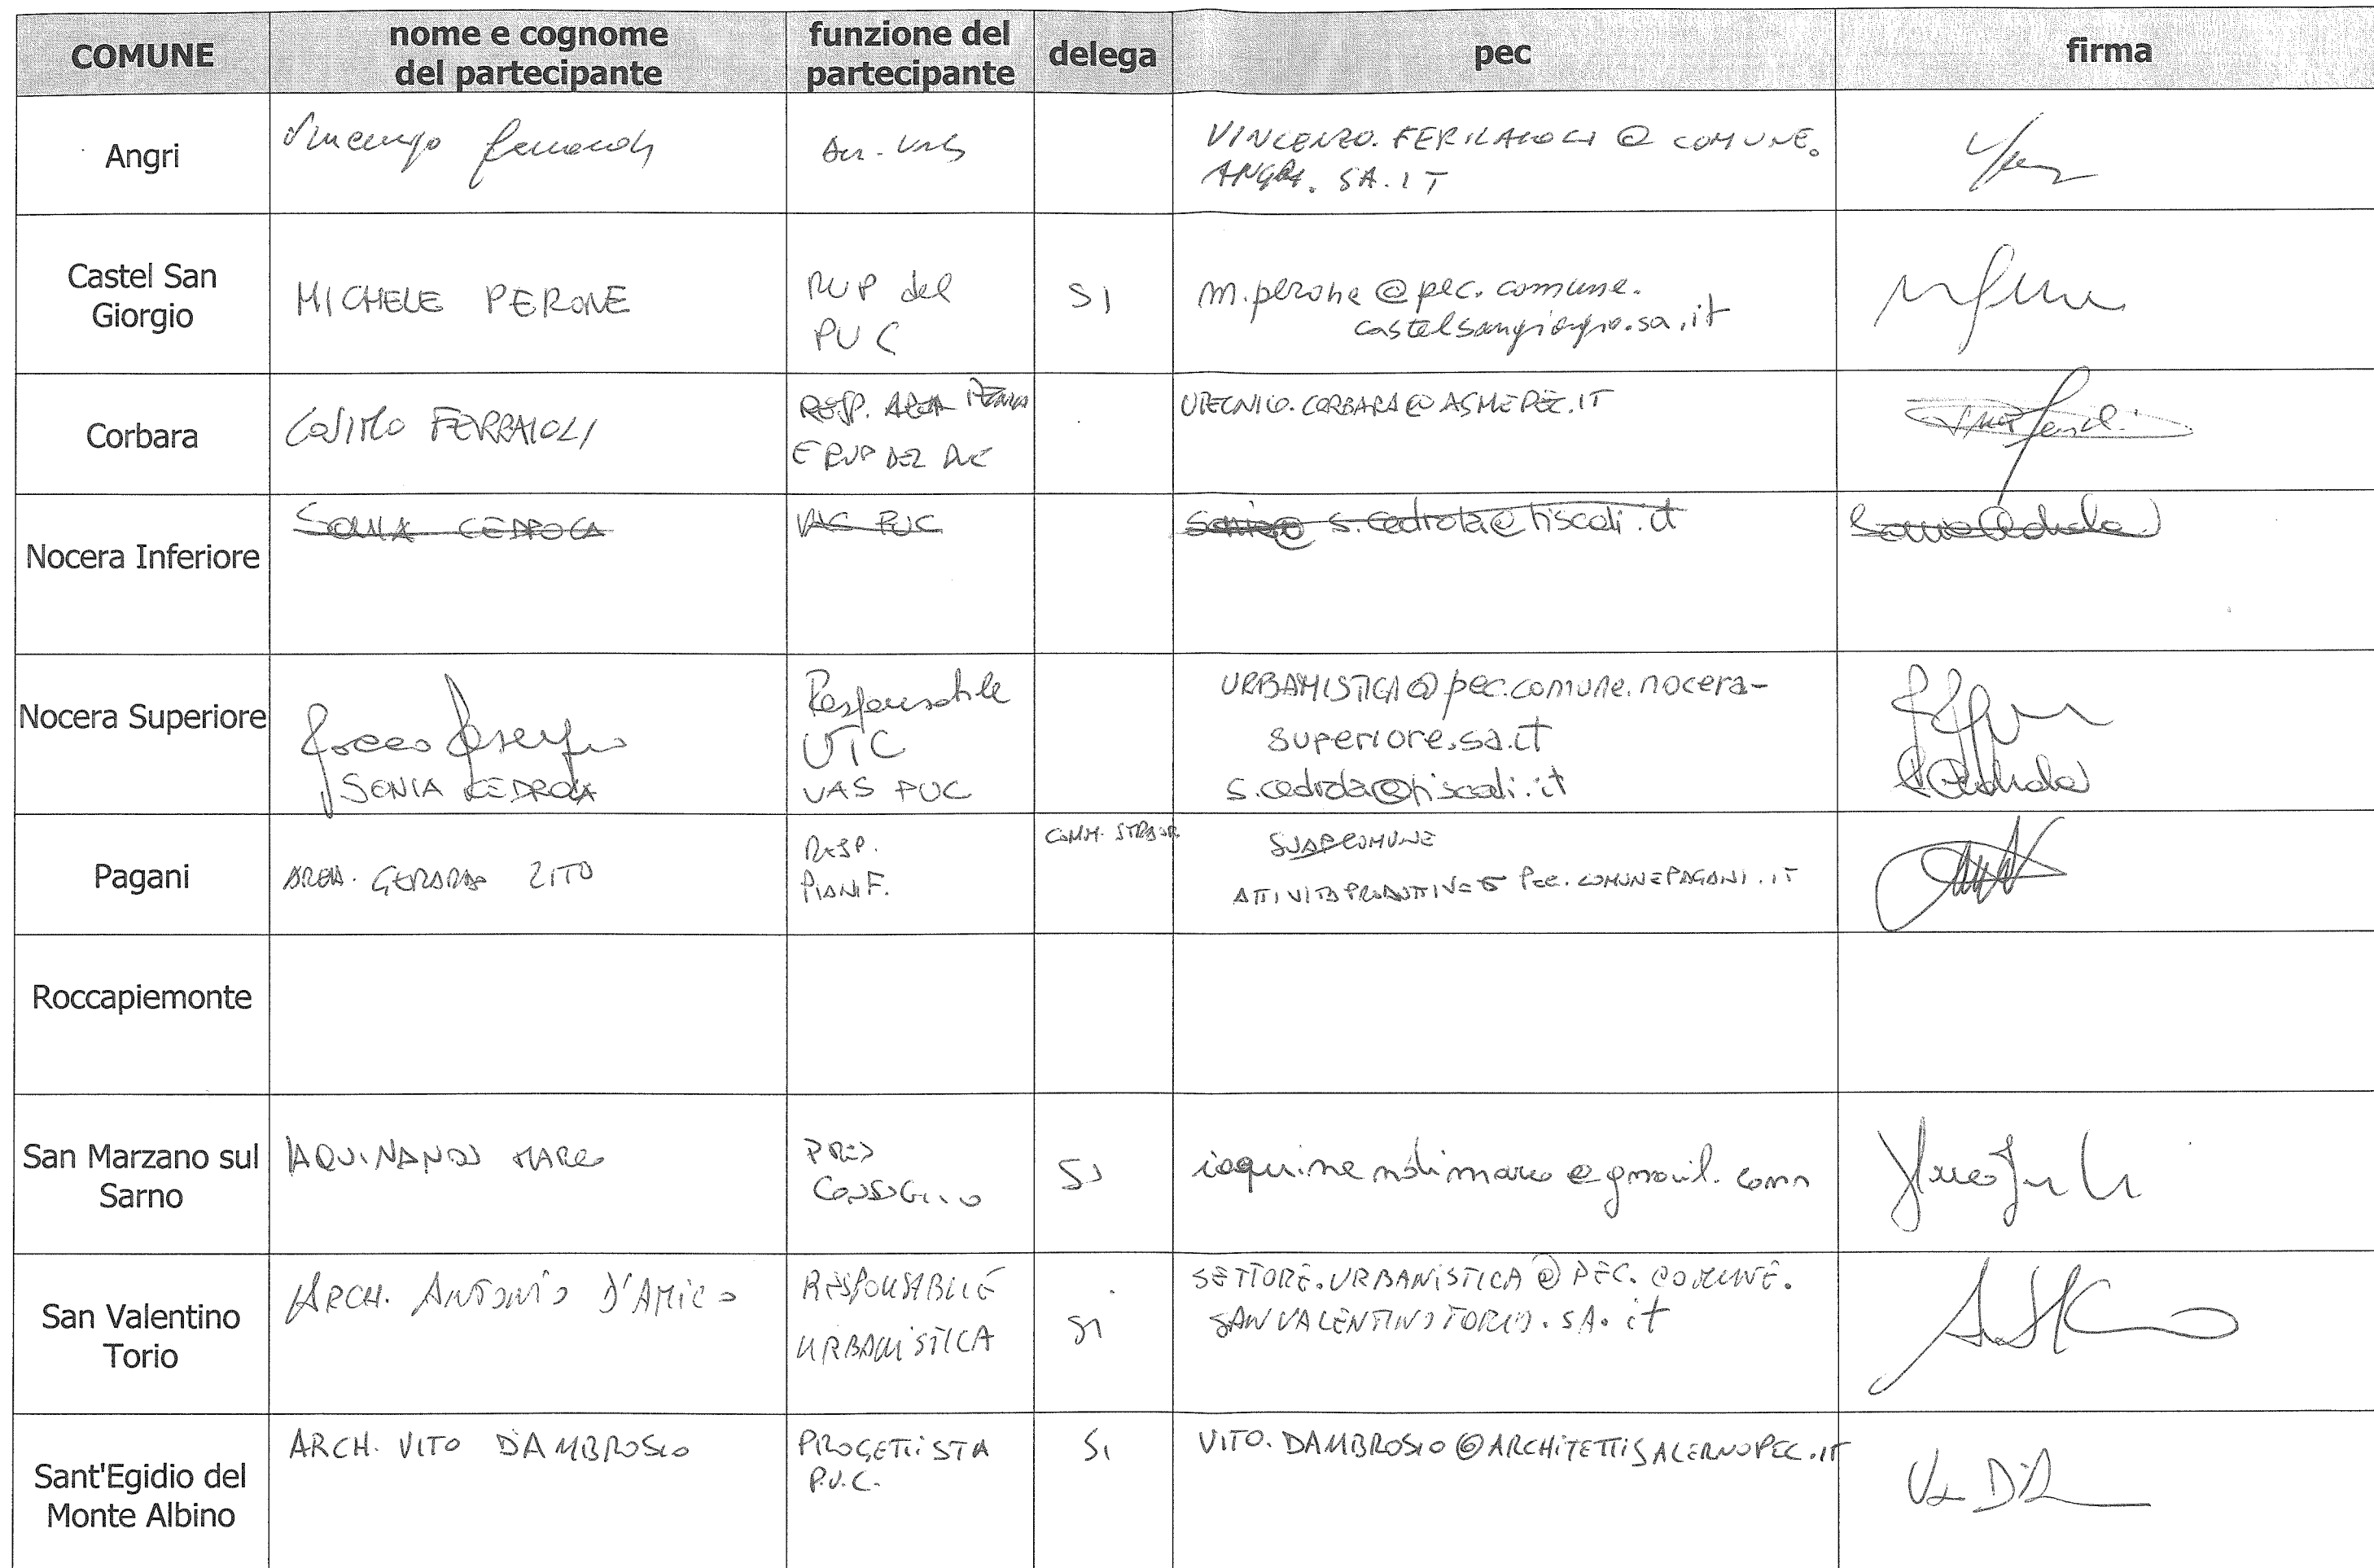 COMUNE
nome e cognome
del partecipante
funzione del
partecipante
delega
pec
firma
Angri
Vincenzo
VINCENZO. FERRAIOLI @ COMUNE.
ANGRI. SA. IT
Castel San
Giorgio
MICHELE PERONE
RUP del
PUC
SI
m.perone@pec.comune.
castelsangiorgio.sa.it
Corbara
COSIMO FERRAIOLI
RESP. AREA
E RUP DEL PUC
UTECNICO.CORBARA@ASMEPEC.IT
Nocera Inferiore
SONIA CEDROLA
VAS PUC
s.cedrola@tiscali.it
Sonia Cedrola
Nocera Superiore
Rocco
SONIA CEDROLA
Responsabile
UTC
VAS PUC
URBANISTICA@pec.comune.nocera-
superiore.sa.it
s.cedrola@tiscali.it
Pagani
GERARDO ZITO
RESP.
PIANIF.
COMM. STRAOR.
SUAPCOMUNE
ATTIVITAPRODUTTIVE@PEC.COMUNEPAGANI.IT
Roccapiemonte
San Marzano sul
Sarno
MARCO
PRES
CONSIGLIO
SI
San Valentino
Torio
ARCH. ANTONIO D'AMICO
RESPONSABILE
URBANISTICA
SI
SETTORE.URBANISTICA@PEC.COMUNE.
SANVALENTINOTORIO.SA.it
Sant'Egidio del
Monte Albino
ARCH. VITO D'AMBROSIO
PROGETTISTA
P.U.C.
SI
VITO.DAMBROSIO@ARCHITETTISALERNOPEC.IT